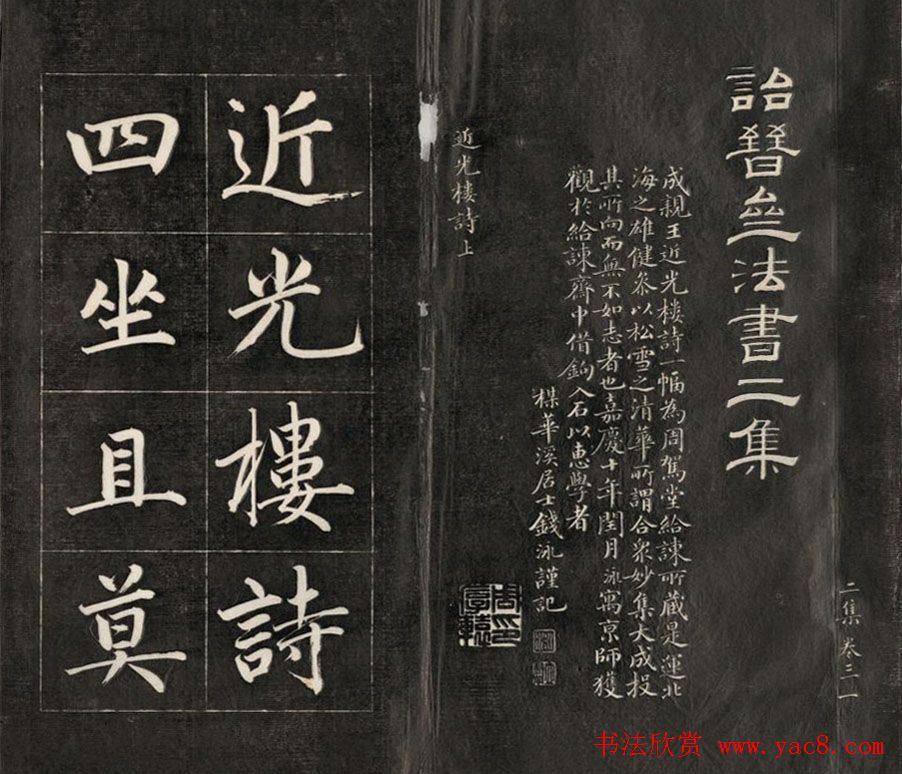 二集 卷三 一
詒晉亝法書二集
成親王近光樓詩一幅為周駕堂給諫所藏是運北
海之雄健叅以松雪之清華所謂合衆妙集大成投
其所向而無不如志者也嘉慶十年閏月泳寓京師獲
觀於給諫齋中借鉤入石以惠學者
楳華溪居士錢泳謹記
周印厚轅
近光樓詩上
近光樓詩
四坐且莫
书法欣赏 www.yac8.com